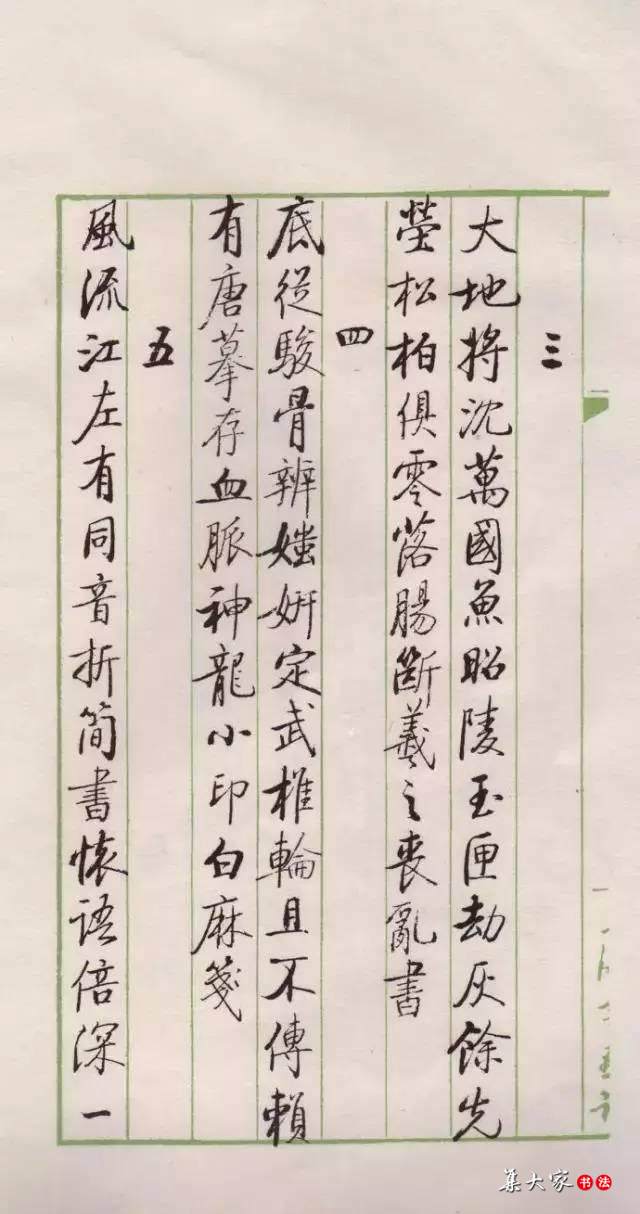 三
大地將沈萬國魚昭陵玉匣劫灰餘先
塋松柏俱零落腸斷羲之喪亂書
四
底從駿骨辨媸妍定武椎輪且不傳賴
有唐摹存血脈神龍小印白麻箋
五
風流江左有同音折簡書懷語倍深一
集大家书法